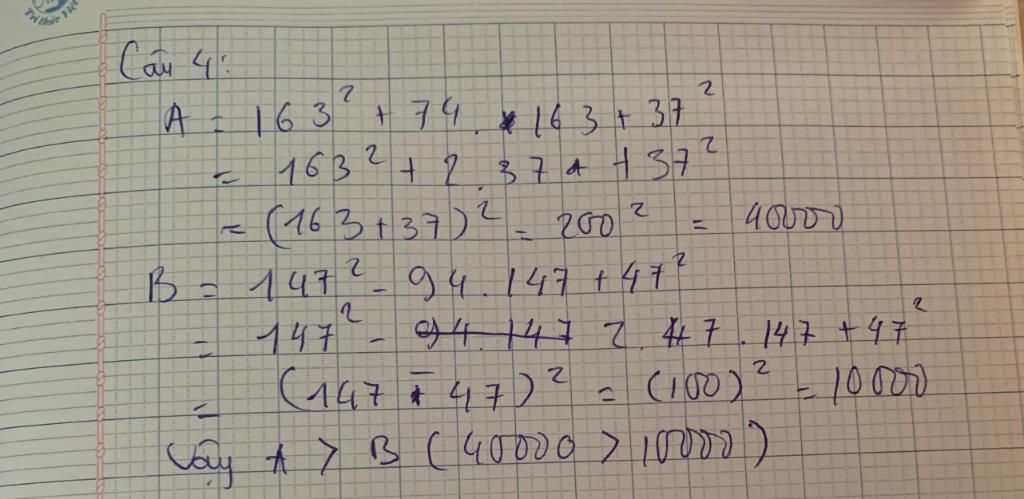 Trí thức Việt
Câu 4:
A = 163² + 74 . 163 + 37²
= 163² + 2 . 37 + 37²
= (163 + 37)² = 200² = 40000
B = 147² - 94 . 147 + 47²
= 147² - 94.147 2 . 47 . 147 + 47²
= (147 - 47)² = (100)² = 10000
Vậy A > B (40000 > 10000)